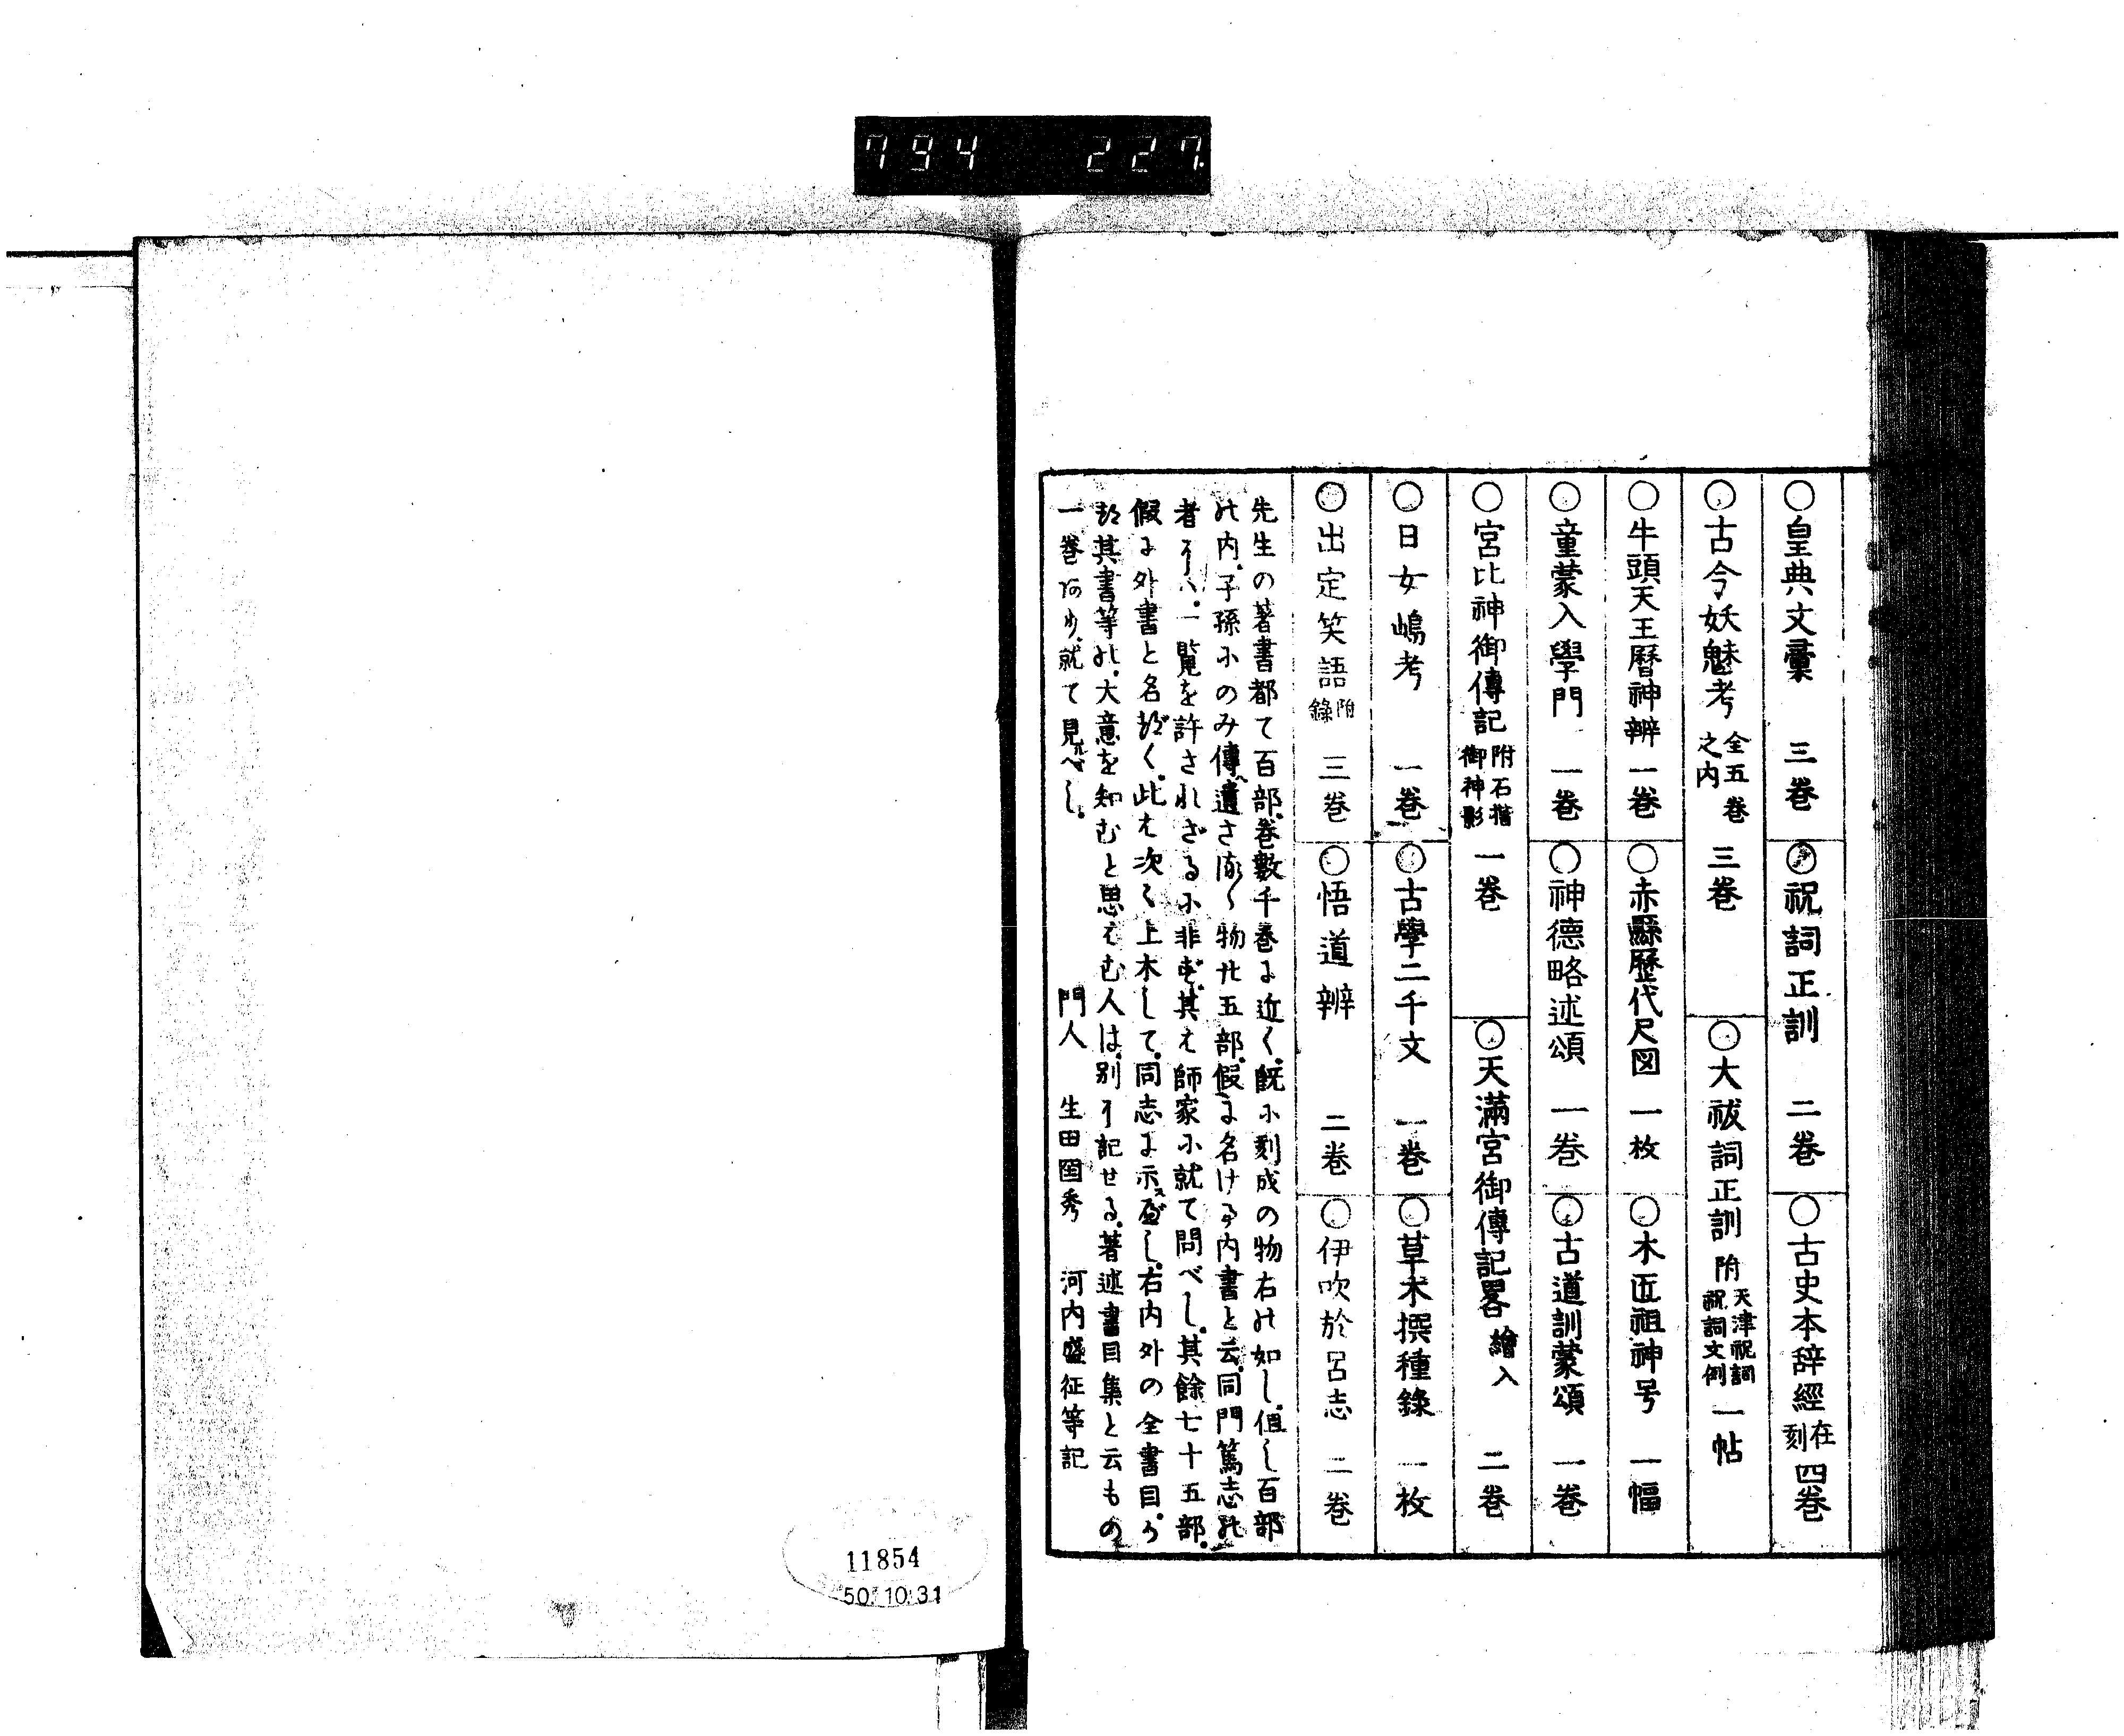 794 227
○皇典文彙 三巻 ○祝詞正訓 二巻 ○古史本辞經 在刻 四巻
○古今妖魅考 全五巻之内 三巻 ○大祓詞正訓 附 天津祝詞 祝詞文例 一帖
○牛頭天王暦神辨 一巻 ○赤縣歴代尺図 一枚 ○木匠祖神号 一幅
○童蒙入學門 一巻 ○神德略述頌 一巻 ○古道訓蒙頌 一巻
○宮比神御傳記 附石摺御神影 一巻 ○天滿宮御傳記畧 繪入 二巻
○日女嶋考 一巻 ○古學二千文 一巻 ○草木撰種錄 一枚
○出定笑語 附錄 三巻 ○悟道辨 二巻 ○伊吹於呂志 二巻
先生の著書都て百部。巻數千巻に近く。既に刻成の物右の如し。但し百部
の内。子孫にのみ傳へ遺さるべく物廿五部。假に名けて内書と云。同門篤志の
者には。一覧を許されざるに非ず。其は師家に就て問べし。其餘七十五部。
假に外書と名づく。此は次々上木して。同志に示すべし。右内外の全書目。か
つ其書等の。大意を知むと思はむ人は。別に記せる。著述書目集と云もの
一巻あり。就て見べし。
門人 生田国秀 河内盛征等記
11854
50.10.31